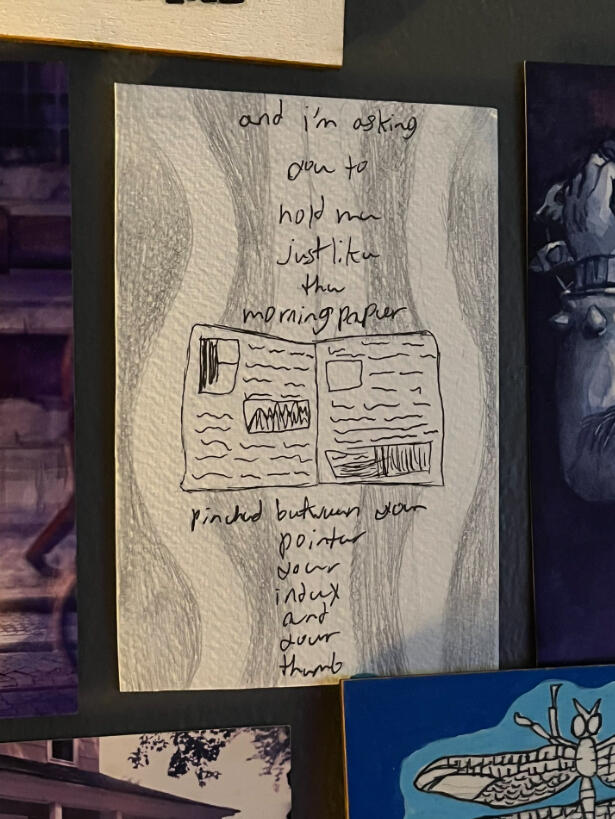 and i'm asking
you to
hold me
just like
the
morning paper
pinched between your
pointer
your
index
and
your
thumb